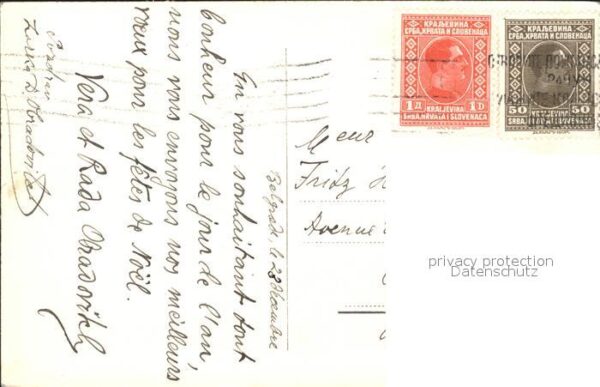 Belgrad, le 23 décembre
En vous souhaitant tout
bonheur pour le jour de l'an,
nous vous envoyons nos meilleurs
vœux pour les fêtes de Noël.
Vera et Rada Obradovitch
Pozdrav
КРАЉЕВИНА
СРБА, ХРВАТА И СЛОВЕНАЦА
1 Д 1 D
KRALJEVINA
SRBA, HRVATA I SLOVENACA
КРАЉЕВИНА
СРБА, ХРВАТА И СЛОВЕНАЦА
50 50
KRALJEVINA
SRBA, HRVATA I SLOVENACA
Fritz
Avenue
privacy protection
Datenschutz